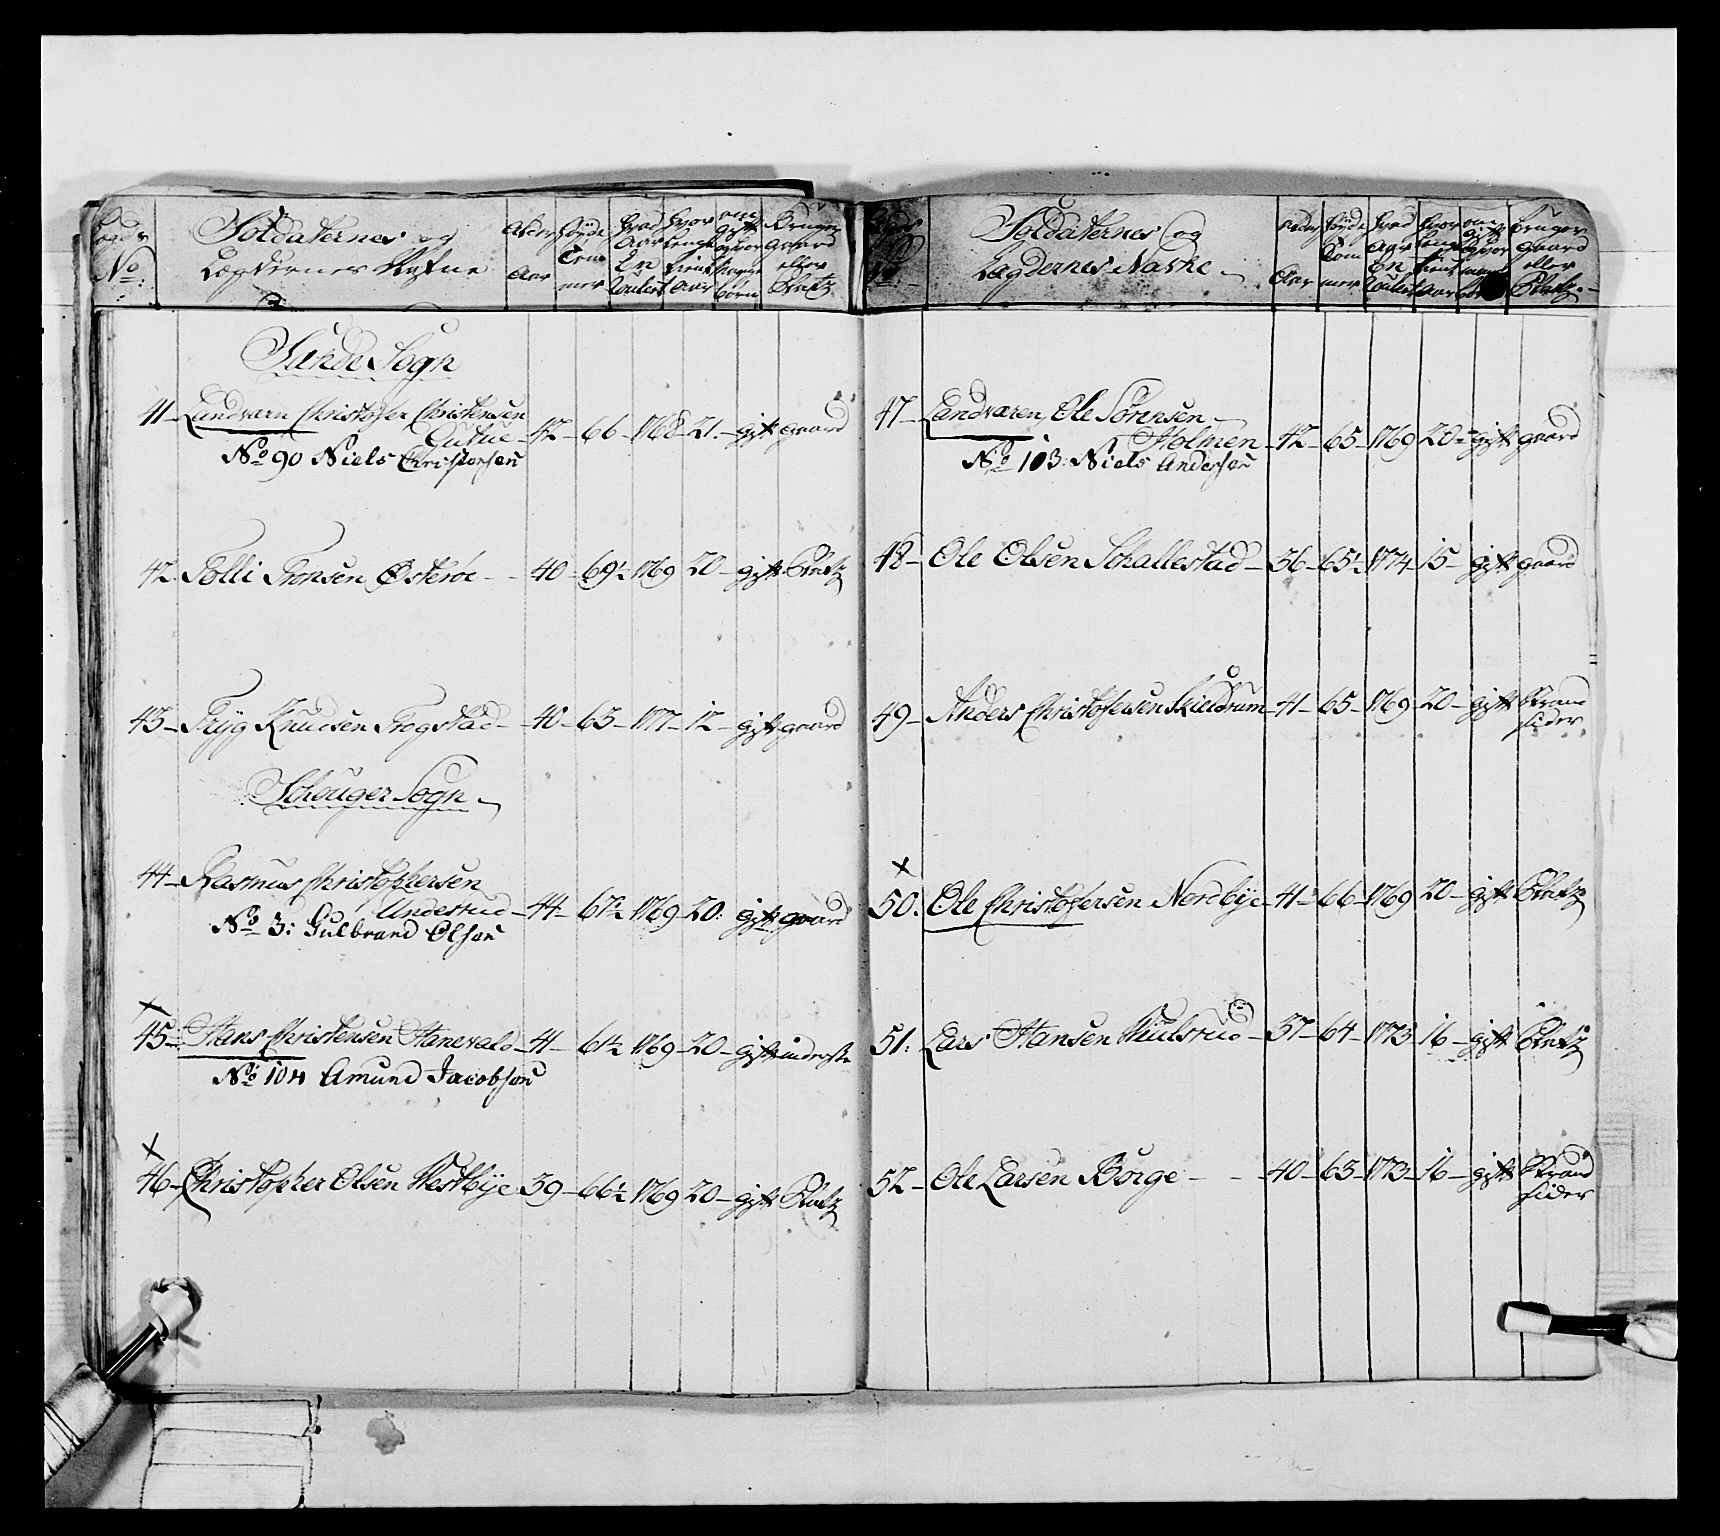 No:
Soldaternes og
Lægdernes Nafne
Alder
Aar
Høyde
Tom
mer
gaard
eller
Platz
Sunde Sogn
41 Landværn Christofer Christensen
42 66 1768 21 gift gaard
No 90 Niels Christensen
42 Tolli Tronsen Østeröe 40 69½ 1769 20 gift Platz
43 Tryg Knudsen Trogstad 40 63 177 12 gift gaard
Schouger Sogn
44 Rasmus Christophersen
Undestud 44 67½ 1769 20 gift gaard
No 3: Gulbrand Olsen
×
45 Hans Christensen Hanevald 41 61½ 1769 20 gift inderste
No 104 Amund Jacobsen
×
46 Christopher Olsen Westbÿe 39 66½ 1769 20 gift Platz
Soldaternes og
Lægdernes Nafne
Alder
Aar
Høyde
Tom
mer
bruger
gaard
eller
Platz
47 Landværen Ole Sörensen
Holmen 42 65 1769 20 gift gaard
No 103: Niels Andersen
48 Ole Olsen Schallestad 36 65½ 1774 15 gift gaard
49 Anders Christofersen Skieldrum 41 65 1769 20 gift Strand
sider
×
50: Ole Christofersen Nordbÿe 41 66 1769 20 gift Platz
51: Lars Hansen Huulstud 37 64 1773 16 gift Platz
52 Ole Larsen Börge 40 63 1773 16 gift Strand
sider